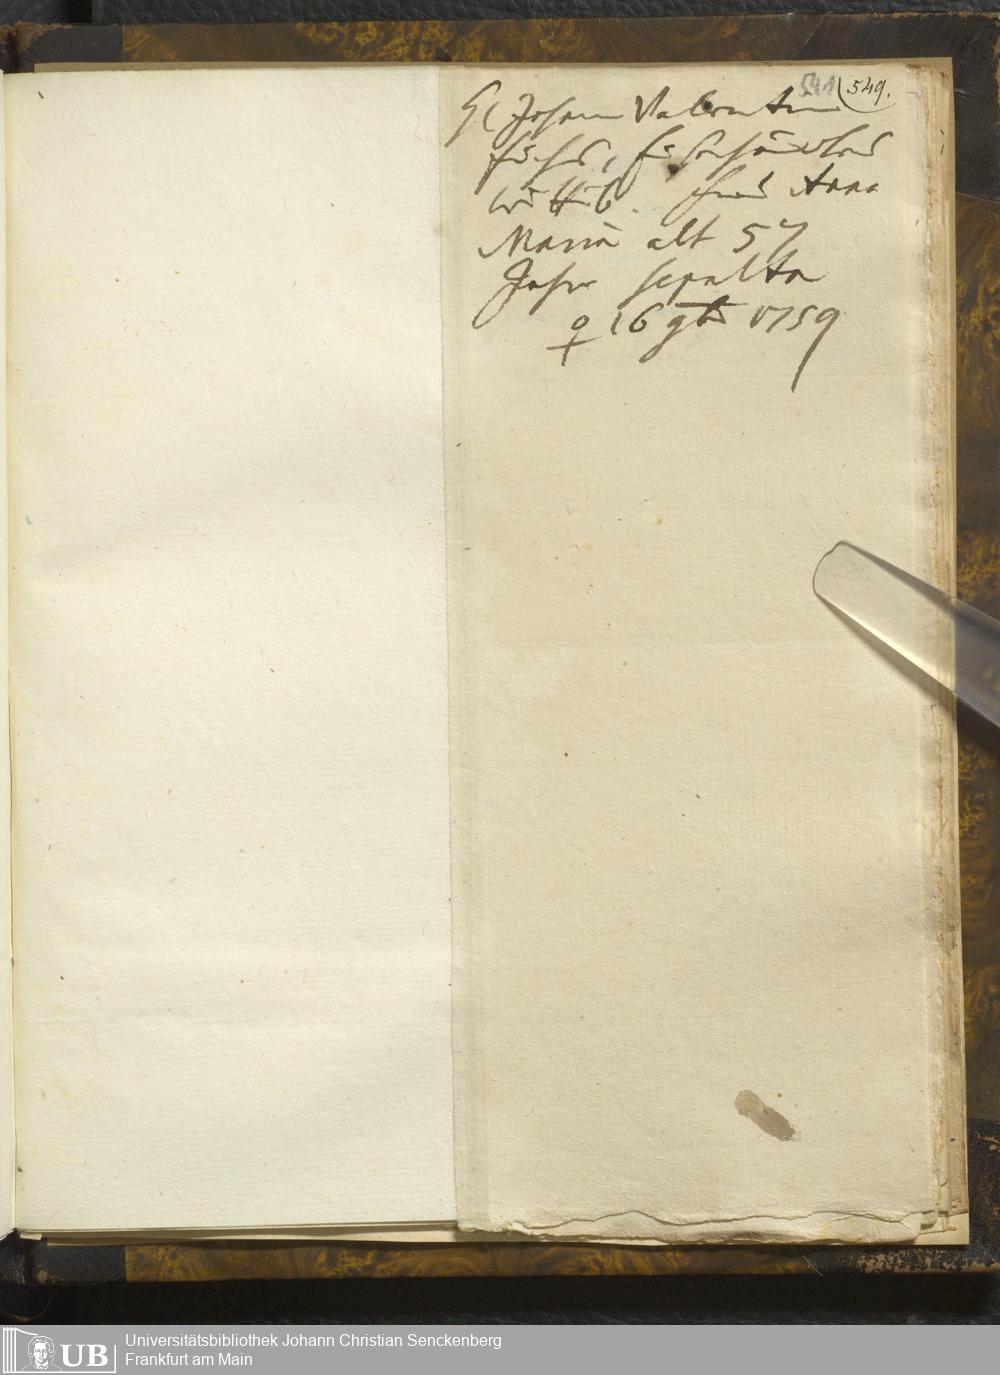 541 549.
H Johann Valentin
Fuchs,
wittib. Anna
Maria alt 57
Jahr sepulta
♀ 16 9br 1759
Universitätsbibliothek Johann Christian Senckenberg
Frankfurt am Main
UB